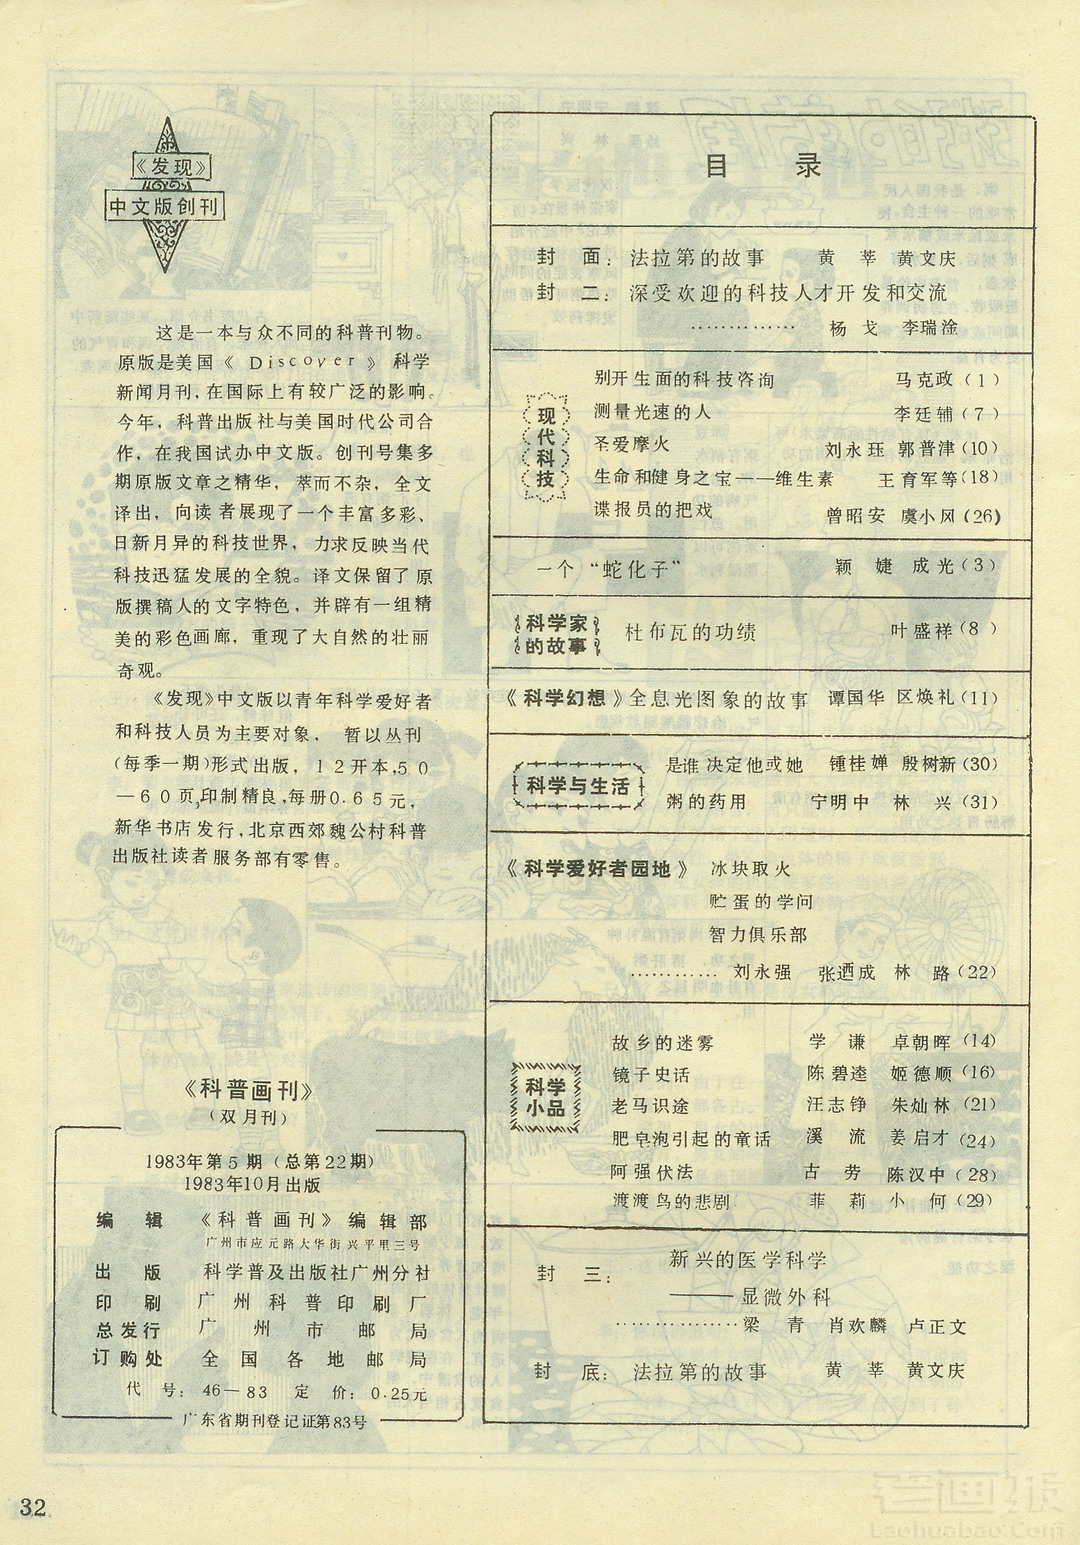 《发现》
中文版创刊
这是一本与众不同的科普刊物。
原版是美国《Discover》科学
新闻月刊，在国际上有较广泛的影响。
今年，科普出版社与美国时代公司合
作，在我国试办中文版。创刊号集多
期原版文章之精华，萃而不杂，全文
译出，向读者展现了一个丰富多彩、
日新月异的科技世界，力求反映当代
科技迅猛发展的全貌。译文保留了原
版撰稿人的文字特色，并辟有一组精
美的彩色画廊，重现了大自然的壮丽
奇观。
《发现》中文版以青年科学爱好者
和科技人员为主要对象，暂以丛刊
(每季一期)形式出版，12开本，50
—60页，印制精良，每册0.65元，
新华书店发行，北京西郊魏公村科普
出版社读者服务部有零售。
《科普画刊》
(双月刊)
1983年第5期(总第22期)
1983年10月出版
编辑 《科普画刊》编辑部
广州市应元路大华街兴平里三号
出版 科学普及出版社广州分社
印刷 广州科普印刷厂
总发行 广州市邮局
订购处 全国各地邮局
代号：46—83 定价：0.25元
广东省期刊登记证第83号
32
目录
封面：法拉第的故事 黄莘 黄文庆
封二：深受欢迎的科技人才开发和交流
…………… 杨戈 李瑞淦
现代科技
别开生面的科技咨询 马克政(1)
测量光速的人 李廷辅(7)
圣爱摩火 刘永珏 郭普津(10)
生命和健身之宝——维生素 王育军等(18)
谍报员的把戏 曾昭安 虞小风(26)
一个“蛇化子” 颖婕 成光(3)
科学家
的故事
杜布瓦的功绩 叶盛祥(8)
《科学幻想》全息光图象的故事 谭国华 区焕礼(11)
科学与生活
是谁决定他或她 锺桂婵 殷树新(30)
粥的药用 宁明中 林兴(31)
《科学爱好者园地》 冰块取火
贮蛋的学问
智力俱乐部
………… 刘永强 张迺成 林路(22)
科学
小品
故乡的迷雾 学谦 卓朝晖(14)
镜子史话 陈碧逵 姬德顺(16)
老马识途 汪志铮 朱灿林(21)
肥皂泡引起的童话 溪流 姜启才(24)
阿强伏法 古劳 陈汉中(28)
渡渡鸟的悲剧 菲莉 小何(29)
封三：
新兴的医学科学
——显微外科
……………梁青 肖欢麟 卢正文
封底：法拉第的故事 黄莘 黄文庆
老画报
Laohuabao.Com